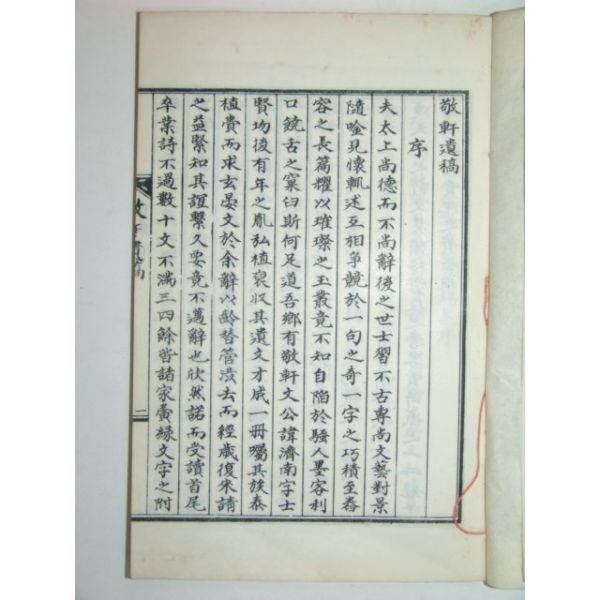 敬軒遺稿
序
夫太上尚德而不尚辭後之世士習不古專尚文藝對景
隨唫見懷輒述互相爭競於一句之奇一字之巧積至卷
容之長篇耀以璀璨之玉叢竟不知自陷於騷人墨客利
口饒舌之窠臼斯何足道吾鄉有敬軒文公諱濟南字士
賢均後有年之胤弘植裒收其遺文才成一冊囑其族泰
植賚而求玄晏文於余辭以齡暮管淺去而經歲復來請
之益繄知其誼繄久要竟不邁辭也欣然諾而受讀首尾
卒業詩不過數十文不滿三四餘皆諸家夤緣文字之附
敬軒遺稿
一